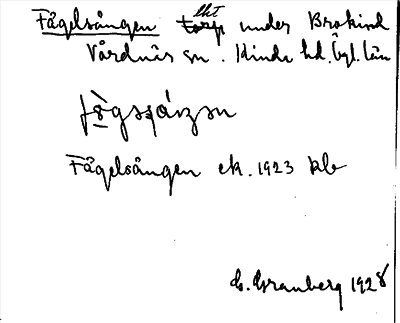 Fågelsången lht under Brokind
Vårdnäs sn. Kinda hd. Ögl. län
Fågelsången ek. 1923 kb
G. Granberg 1928